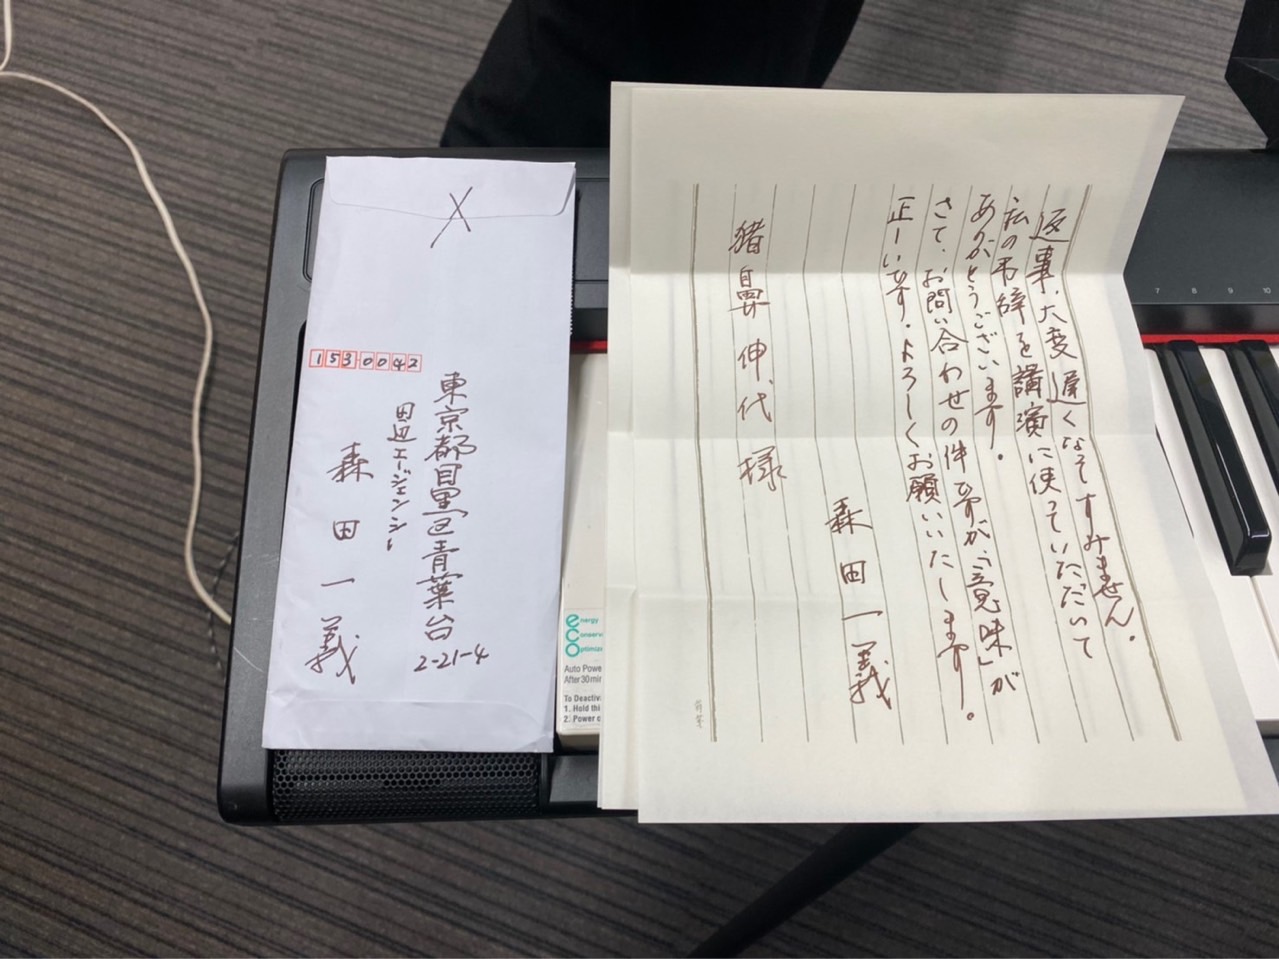 〆
1530042
東京都目黒区青葉台
2-21-4
田辺エージェンシー
森田一義
返事、大変遅くなってすみません。
私の弔辞を講演に使っていただいて
ありがとうございます。
さて、お問い合わせの件ですが、「意味」が
正しいです。よろしくお願いいたします。
森田一義
猪鼻伸代様
energy
Conserv
Optimiza
Auto Powe
After 30min
To Deactiv
1. Hold thi
2. Power o
7 8 9 10